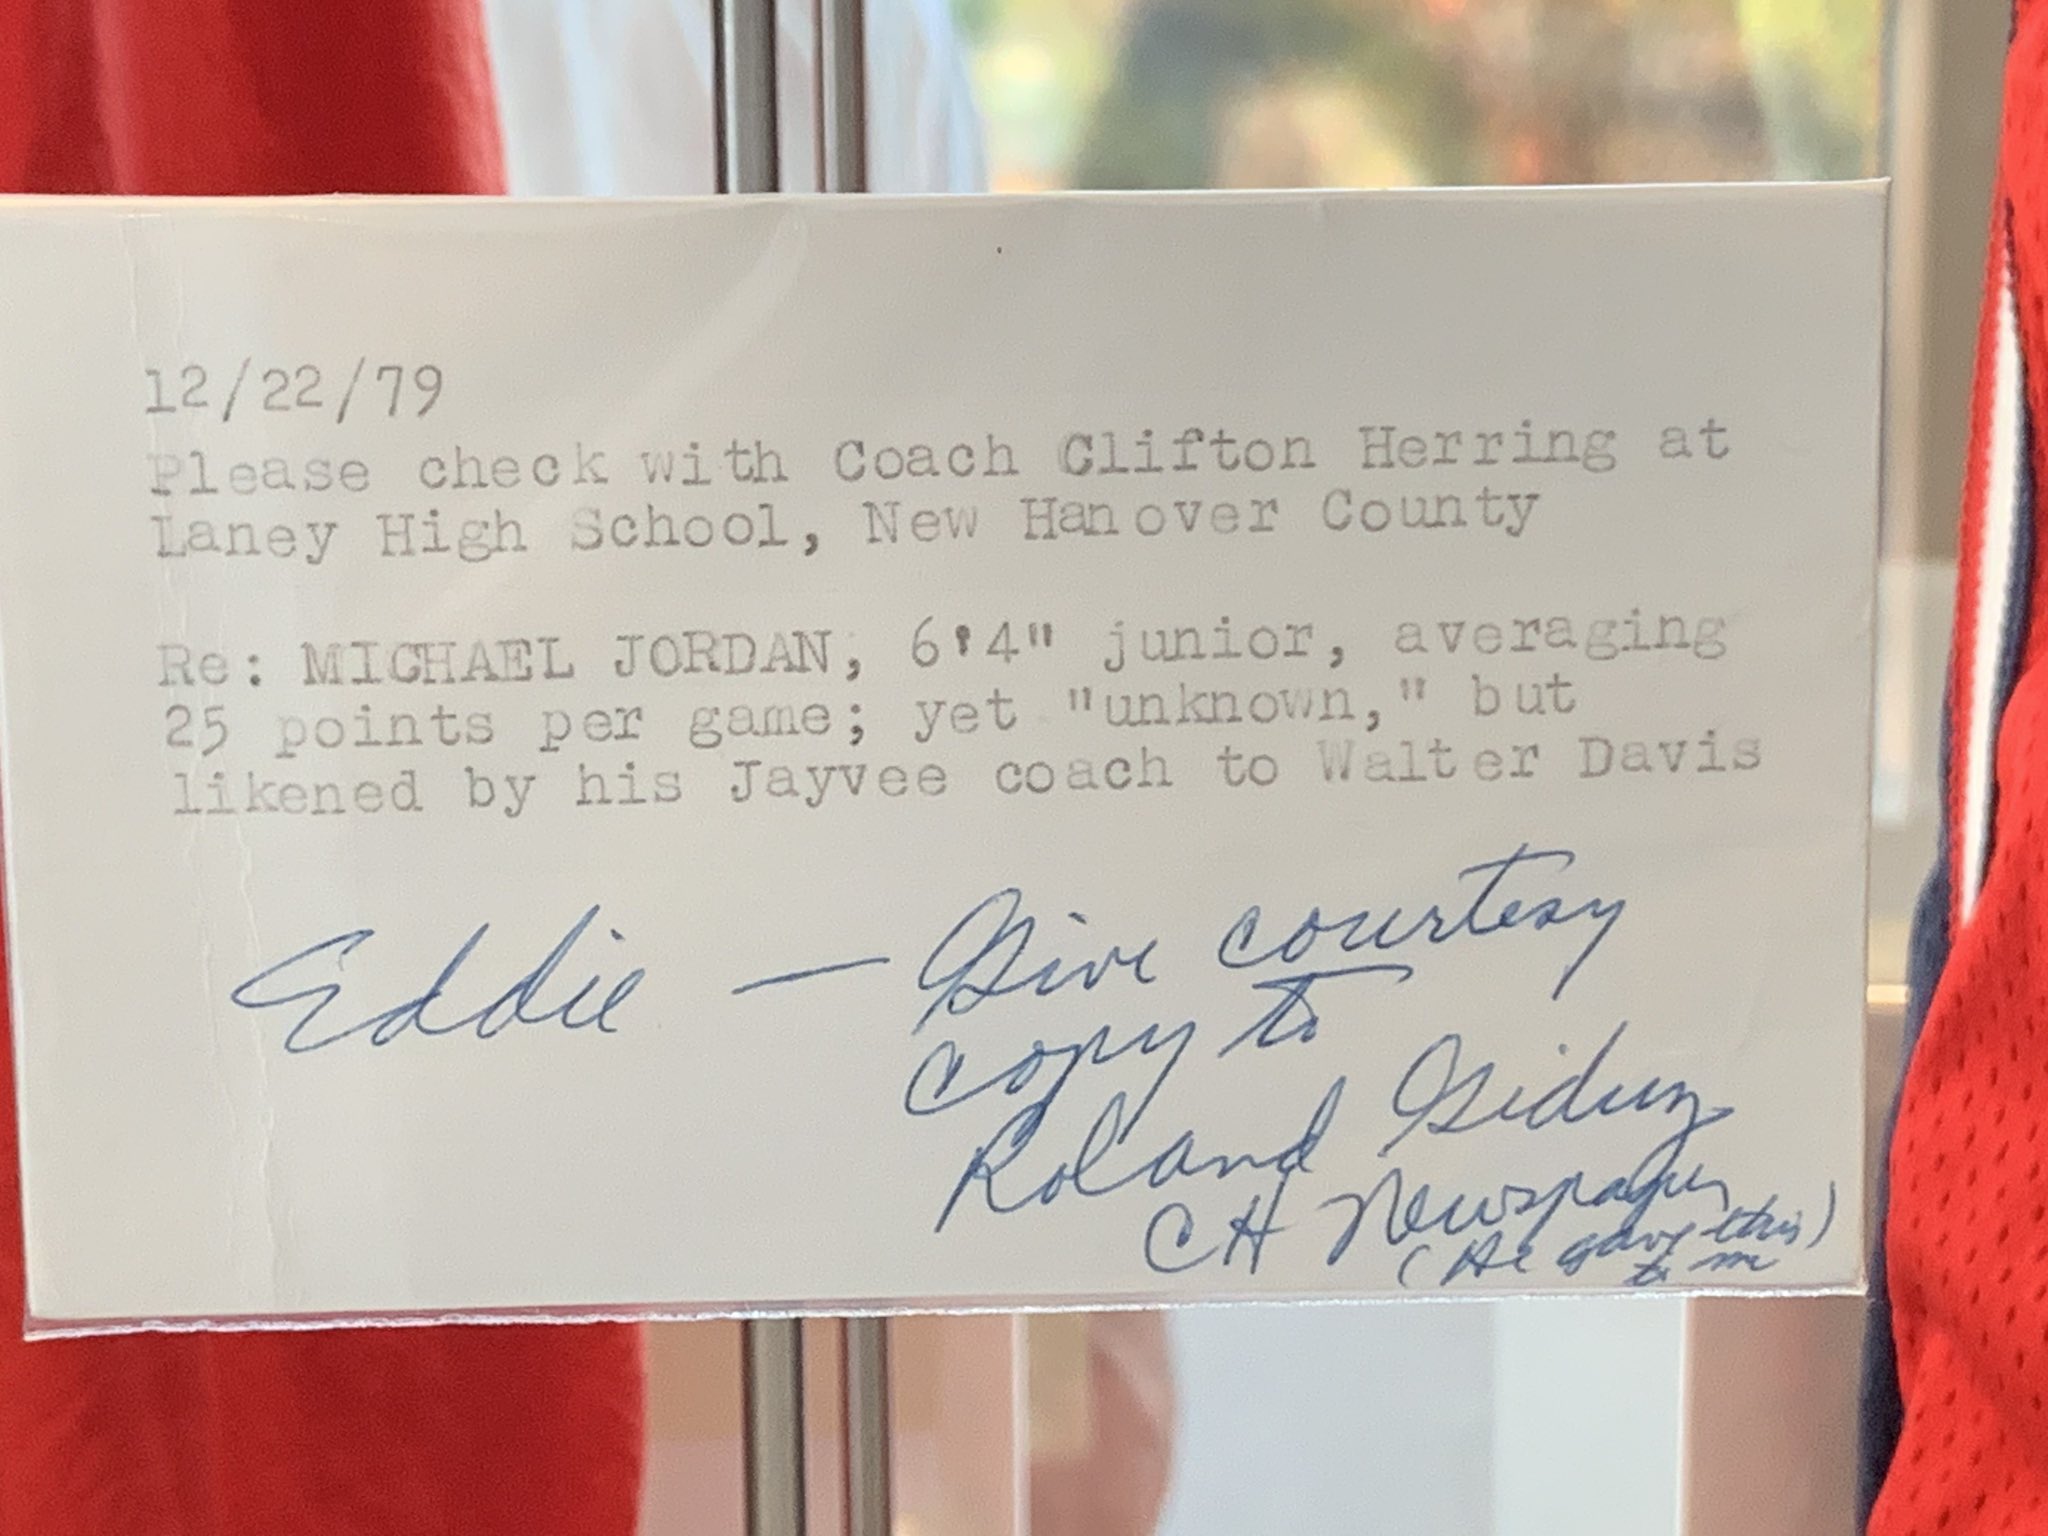 12/22/79
Please check with Coach Clifton Herring at
Laney High School, New Hanover County
Re: MICHAEL JORDAN, 6'4" junior, averaging
25 points per game; yet "unknown," but
likened by his Jayvee coach to Walter Davis
Eddie — Give courtesy
copy to
Roland Giduz
CH Newspaper
(He gave this)
to me